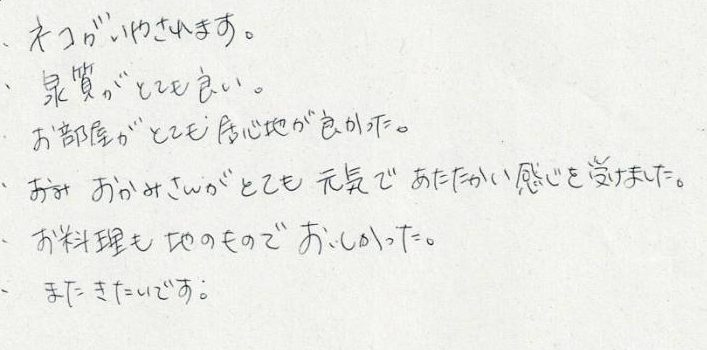 ・ネコがいやされます。
・泉質がとても良い。
・お部屋がとても居心地が良かった。
・おみ おかみさんがとても 元気で あたたかい感じを受けました。
・お料理も 地のもので おいしかった。
・またきたいです。